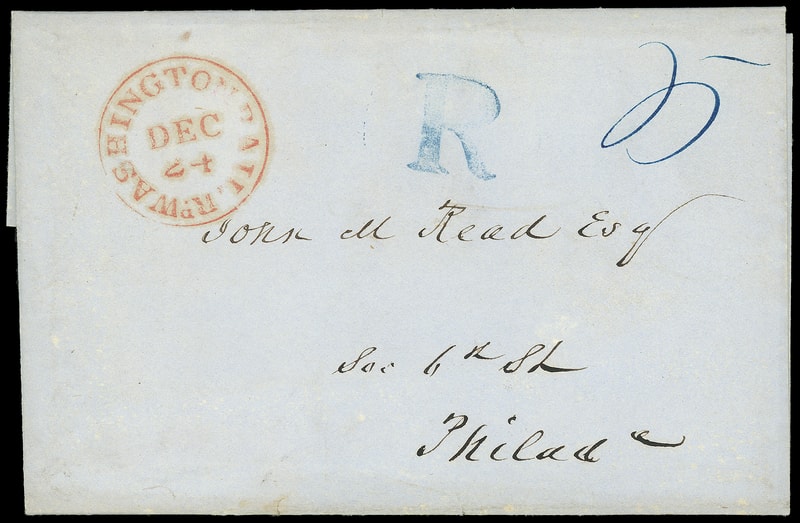 WASHINGTON RAIL.Rd.
DEC
24
R
5
John M Read Esq
Soo 6th St
Philada